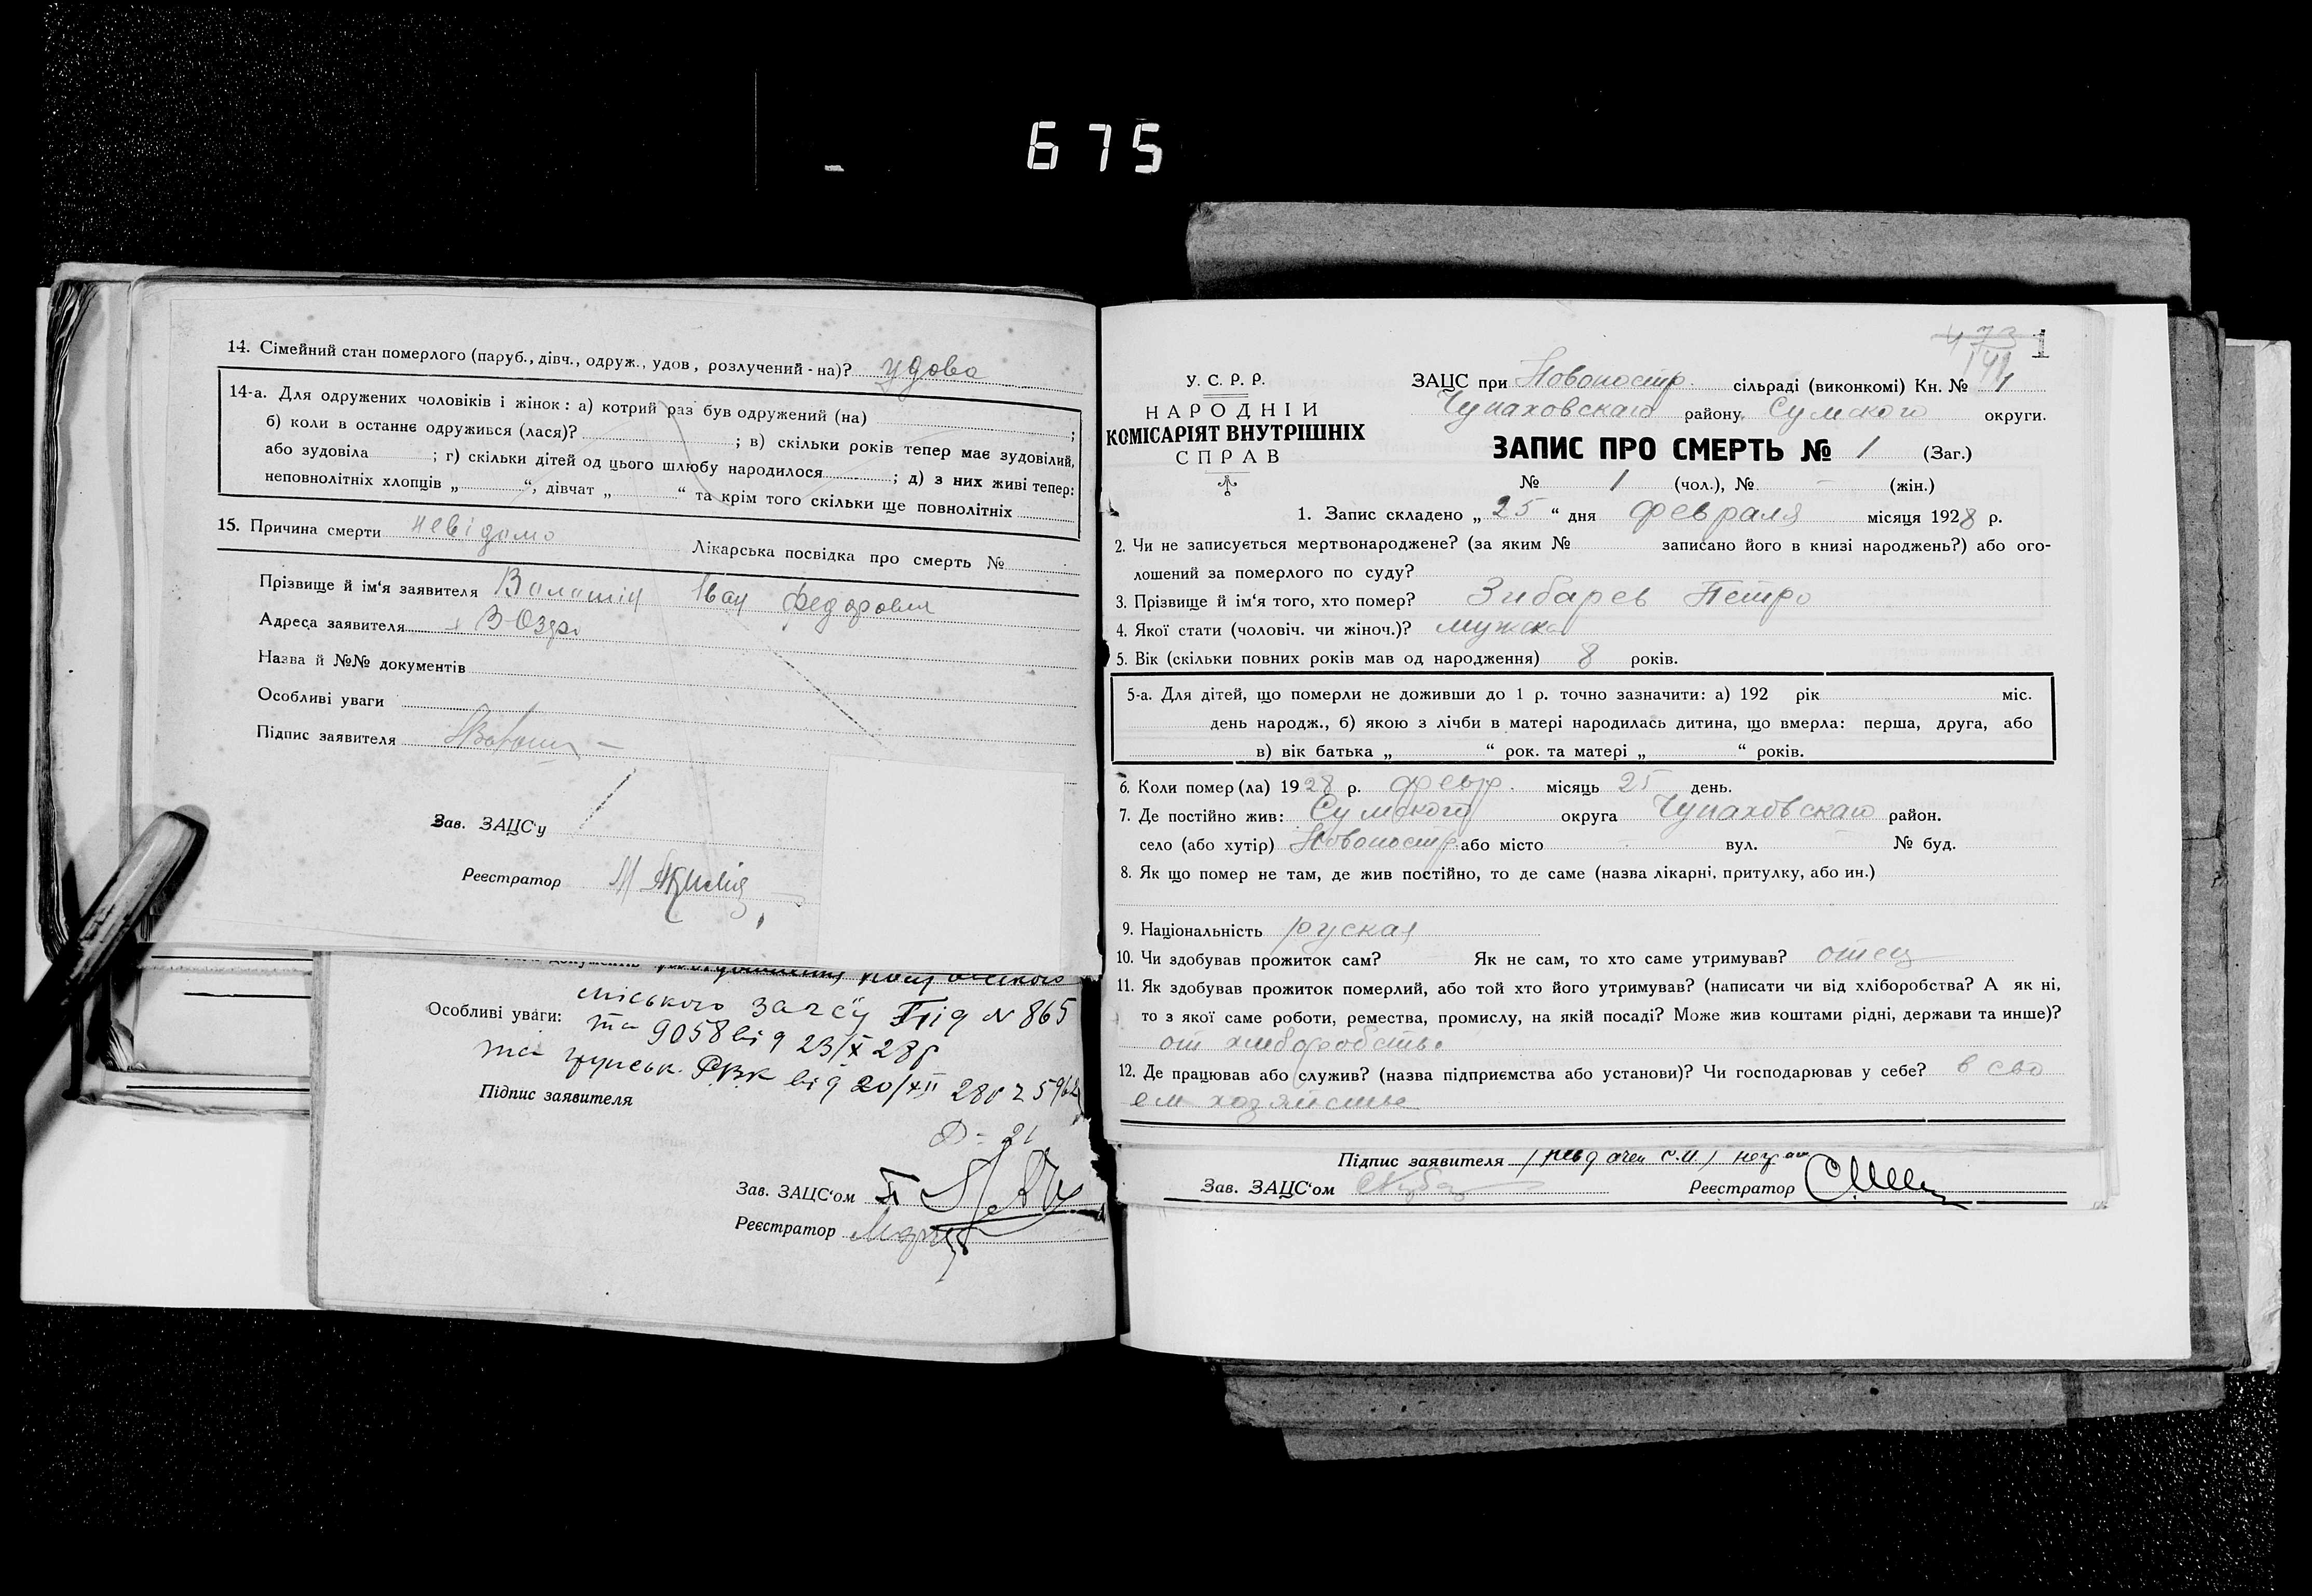 675
14. Сімейний стан померлого (паруб., дівч., одруж., удов, розлучений - на)? удова
14-а. Для одружених чоловіків і жінок: а) котрий раз був одружений (на) ;
б) коли в останнє одружився (лася)? ; в) скільки років тепер має зудовілий,
або зудовіла ; г) скільки дітей од цього шлюбу народилося ; д) з них живі тепер:
неповнолітніх хлопців „ “, дівчат „ “ та крім того скільки ще повнолітніх
15. Причина смерти невідомо Лікарська посвідка про смерть №
Прізвище й ім‘я заявителя Іван Федорович
Адреса заявителя
Назва й №№ документів
Особливі уваги
Підпис заявителя
Зав. ЗАЦС‘у
Реєстратор
Особливі уваги: міського загсу № 865
та 9058 від 23/X 28р
та РВК від 20/XII 28р
Підпис заявителя
Зав. ЗАЦС‘ом
Реєстратор
473
1
У. С. Р. Р.
НАРОДНІЙ
КОМІСАРІЯТ ВНУТРІШНІХ
СПРАВ
ЗАЦС при Новопостр. сільраді (виконкомі) Кн. № 1
Чупаховскаго району, Сумского округи.
ЗАПИС ПРО СМЕРТЬ № 1 (Заг.)
№ 1 (чол.), № – (жін.)
1. Запис складено „ 25 “ дня февраля місяця 1928 р.
2. Чи не записується мертвонароджене? (за яким № записано його в книзі народжень?) або ого-
лошений за померлого по суду?
3. Прізвище й ім‘я того, хто помер? Зибарев Петро
4. Якої стати (чоловіч. чи жіноч.)? мужска
5. Вік (скільки повних років мав од народження) 8 років.
5-а. Для дітей, що померли не доживши до 1 р. точно зазначити: а) 192 рік міс.
день народж., б) якою з лічби в матері народилась дитина, що вмерла: перша, друга, або
в) вік батька „ “ рок. та матері „ “ років.
6. Коли помер (ла) 1928 р. февр. місяць 25 день.
7. Де постійно жив: Сумского округа Чупаховскаго район.
село (або хутір) Новопостр. або місто вул. № буд.
8. Як що помер не там, де жив постійно, то де саме (назва лікарні, притулку, або ин.)
9. Національність руская
10. Чи здобував прожиток сам? Як не сам, то хто саме утримував? отец
11. Як здобував прожиток померлий, або той хто його утримував? (написати чи від хліборобства? А як ні,
то з якої саме роботи, ремества, промислу, на якій посаді? Може жив коштами рідні, держави та инше)?
от хлеборобства
12. Де працював або служив? (назва підприємства або установи)? Чи господарював у себе? в сво
ем хозяистве
Підпис заявителя
Зав. ЗАЦС‘ом Реєстратор